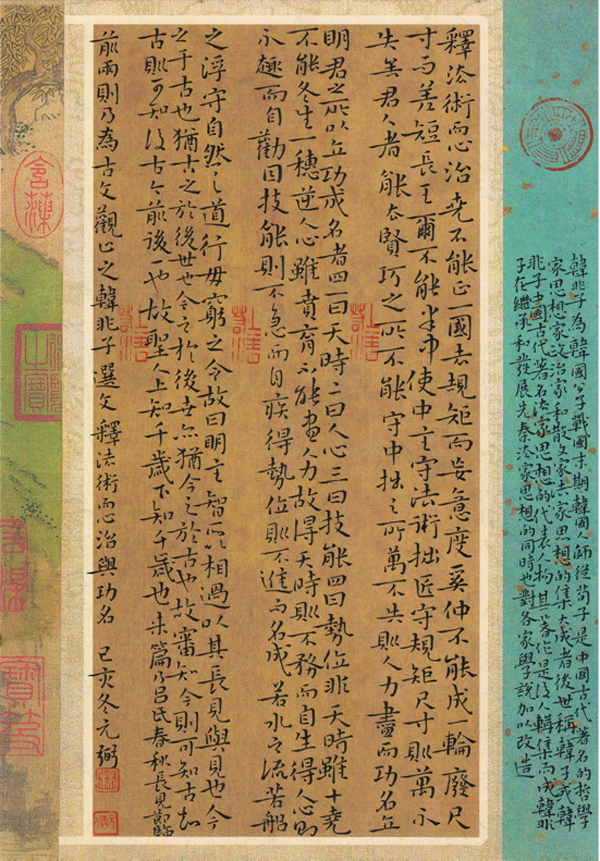 韓非子為韓國公子戰國末期韓國人師從荀子是中國古代著名的哲學
家思想家政治家和散文家法家思想的集大成者後世稱韓子或韓
非子中國古代著名法家思想的代表人物其著作是後人輯集而成韓非
子在繼承和發展先秦法家思想的同時也對各家學說加以改造
釋法術而心治堯不能正一國去規矩而妄意度奚仲不能成一輪廢尺
寸而差短長王爾不能半中使中主守法術拙匠守規矩尺寸則萬不
失矣君人者能去賢巧之所不能守中拙之所萬不失則人力盡而功名立
明君之所以立功成名者四一曰天時二曰人心三曰技能四曰勢位非天時雖十堯
不能冬生一穗逆人心雖賁育不能盡人力故得天時則不務而自生得人心則
不趣而自勸因技能則不急而自疾得勢位則不進而名成若水之流若船
之浮守自然之道行毋窮之令故曰明主智所相過以其長見與見也今
之于古也猶古之於後世也今之於後世亦猶今之於古也故審知今則可知古知
古則可知後古今前後一也故聖人上知千歲下知千歲也末篇乃呂氏春秋長見節臨
前兩則乃為古文觀止之韓非子選文釋法術而心治與功名 己亥冬元弼